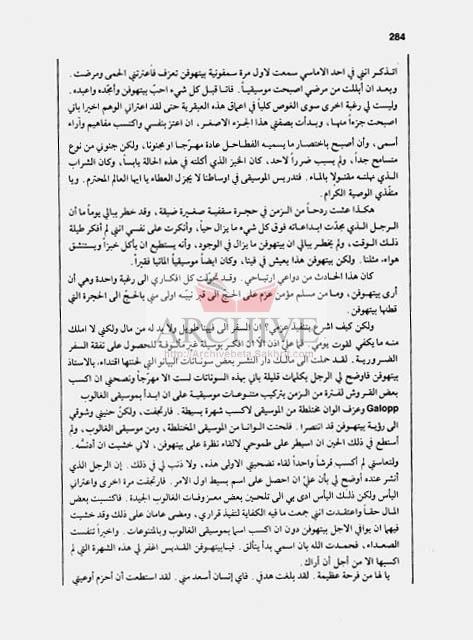 284
اتذكر انني في احد الاماسي سمعت لاول مرة سمفونية بيتهوفن تعزف فأعترتني الحمى ومرضت .
وبعد ان أبللت من مرضي اصبحت موسيقياً . فانا قبل كل شيء احب بيتهوفن وأمجّده واعبده .
وليست لي رغبة اخرى سوى الغوص كلياً في اعماق هذه العبقرية حتى لقد اعتراني الوهم اخيرا باني
اصبحت جزءاً منها ، وبدأت بصفتي هذا الجزء الاصغر ، ان اعتز بنفسي واكتسب مفاهيم وآراء
أسمى ، وأن أصبح باختصار ما يسميه الفطاحل عادة مهرّجا او مجنونا ، ولكن جنوني من نوع
متسامح جداً ، ولم يسبب ضرراً لاحد ، كان الخبز الذي أكلته في هذه الحالة يابساً ، وكان الشراب
الذي نهلته مقتولاً بالماء . فتدريس الموسيقى في اوساطنا لا يجزل العطاء يا ايها العالم المحترم . ويا
منفّذي الوصية الكرام .
هكذا عشت ردحاً من الزمن في حجرة سقفية صغيرة ضيقة ، وقد خطر ببالي يوماً ما أن
الرجل الذي مجدّت ابداعاته فوق كل شيء ما يزال حياً ، وأنكرت على نفسي انني لم أفكر طيلة
ذلك الوقت ، ولم يخطر ببالي ان بيتهوفن ما يزال في الوجود ، وأنه يستطيع ان يأكل خبزاً ويستنشق
هواء ، مثلنا . ولكن بيتهوفن هذا يعيش في فينا ، وكان ايضاً موسيقياً المانيا فقيراً .
كان هذا الحادث من دواعي ارتياحي . وقد تحولّت كل افكاري الى رغبة واحدة وهي أن
أرى بيتهوفن ، وما من مسلم مؤمن عزم على الحجّ الى قبر نبيّه اولى مني بالحجّ الى الحجرة التي
قطنها بيتهوفن .
ولكن كيف اشرع بتنفيذ عزمي ؟ ان السفر الى فينا طويل ولا بد له من مال ولكني لا املك
ما يكفي لقوت يومي . فما عليّ اذن الا ان افكر بوسيلة غير مألوفة للحصول على نفقة السفر
الضرورية . لقد حملت الى مالك دار النشر بعض سوناتات البيانو التي لحنتها اقتداء ، بالاستاذ
بيتهوفن فاوضح لي الرجل بكلمات قليلة باني بهذه السوناتات لست الا مهرّجاً ونصحني ان اكسب
بعض القروش لفترة من الزمن بتركيب متنوعات موسيقية على ان ابدأ بموسيقى الغالوب
Galopp وعزف الوان مختلطة من الموسيقى لاكسب شهرة بسيطة . فارتجفت ، ولكنّ حنيني وشوقي
الى رؤية بيتهوفن قد انتصرا . فلحنت الوانا من الموسيقى المختلطة ، ومن موسيقى الغالوب ، ولم
أستطع في ذلك الحين ان اسيطر على طموحي لالقاء نظرة على بيتهوفن ، لاني خشيت ان أدنسه .
ولتعاستي لم أكسب قرشاً واحداً لقاء تضحيتي الاولى هذه ، ولا ذنب لي في ذلك . إن الرجل الذي
أنشر عنده أوضح لي بأن عليّ ان احصل على اسم بسيط اول الامر . فارتجفت مرة اخرى واعتراني
اليأس ولكن ذلك اليأس ادى بي الى تلحين بعض معزوفات الغالوب الجيدة . فاكتسبت بعض
المال حقاً واعتقدت انني جمعت ما فيه الكفاية لتنفيذ قراري ، ومضى عامان على ذلك وقد خشيت
فيهما ان يوافي الاجل بيتهوفن دون ان اكسب اسما بموسيقى الغالوب وبالمتنوعات . واخيراً تنفست
الصعداء ، فحمدت الله بان اسمي بدأ يتألق . فيا بيتهوفن القديس اغفر لي هذه الشهرة التي لم
اكسبها الا من أجل أن أراك .
يا لها من فرحة عظيمة . لقد بلغت هدفي . فاي إنسان أسعد مني . لقد استطعت أن أحزم أوعيتي
ARCHIVE
http://Archivebeta.Sakhrit.com